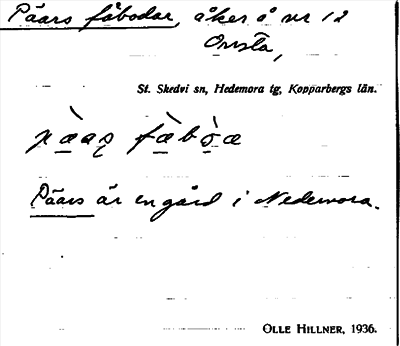 Päärs fäbodar, åker å nr 12
Onsta,
St. Skedvi sn, Hedemora tg, Kopparbergs län.
Päärs är en gård i Hedemora.
OLLE HILLNER, 1936.